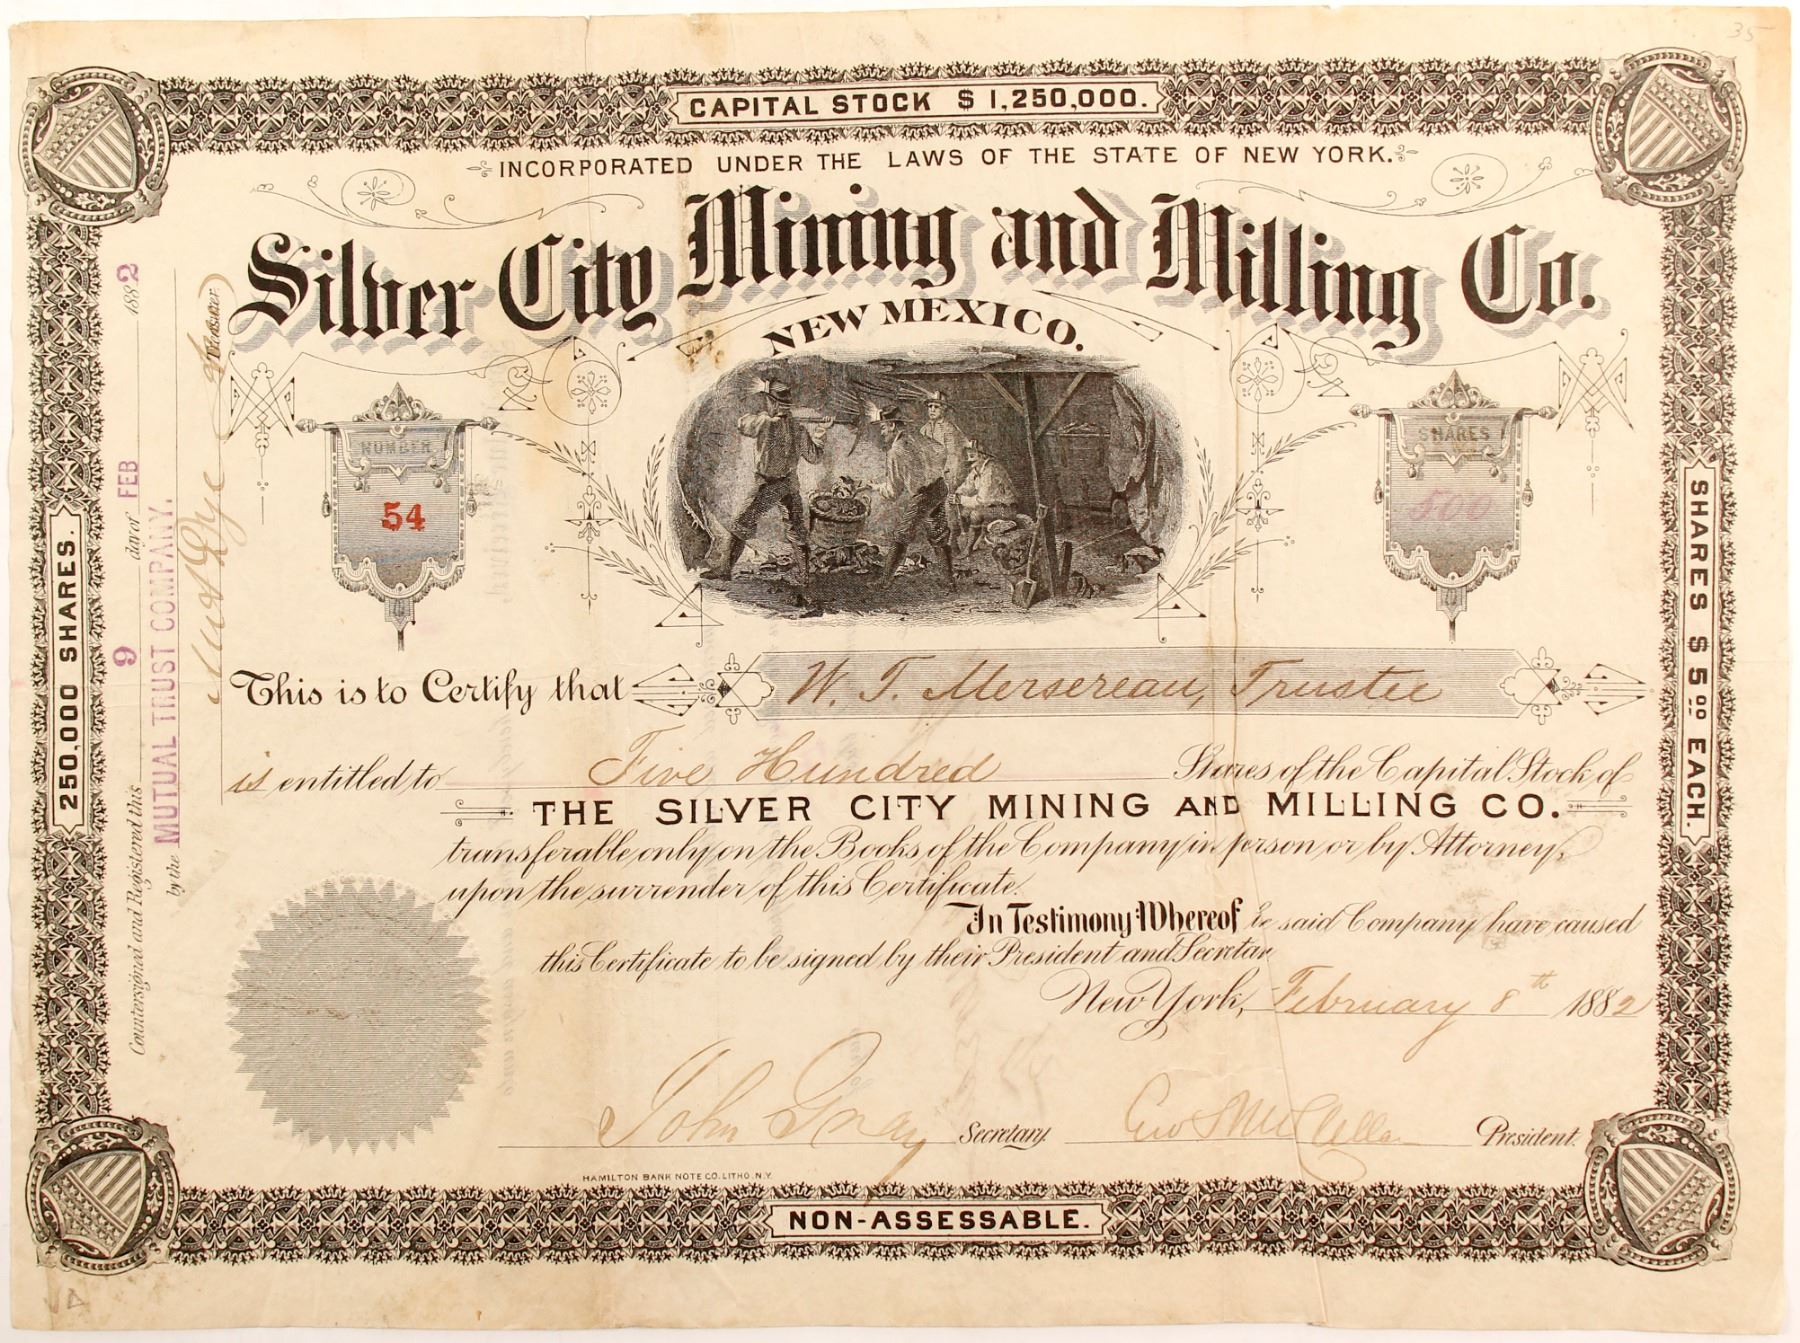 35
CAPITAL STOCK $ 1,250,000.
INCORPORATED UNDER THE LAWS OF THE STATE OF NEW YORK.
Silver City Mining and Milling Co.
NEW MEXICO.
NUMBER
54
SHARES
500
This is to Certify that W. T. Mersereau, Trustee
is entitled to Five Hundred Shares of the Capital Stock of
THE SILVER CITY MINING AND MILLING CO.
transferable only on the Books of the Company in person or by Attorney,
upon the surrender of this Certificate.
In Testimony Whereof said Company have caused
this Certificate to be signed by their President and Secretar
New York, February 8th 1882
John Gray Secretary. Geo S McClellan President.
HAMILTON BANK NOTE CO. LITHO. N.Y.
NON-ASSESSABLE.
250,000 SHARES.
SHARES $ 5 00 EACH.
Countersigned and Registered this 9 day of FEB 1882
by the MUTUAL TRUST COMPANY.